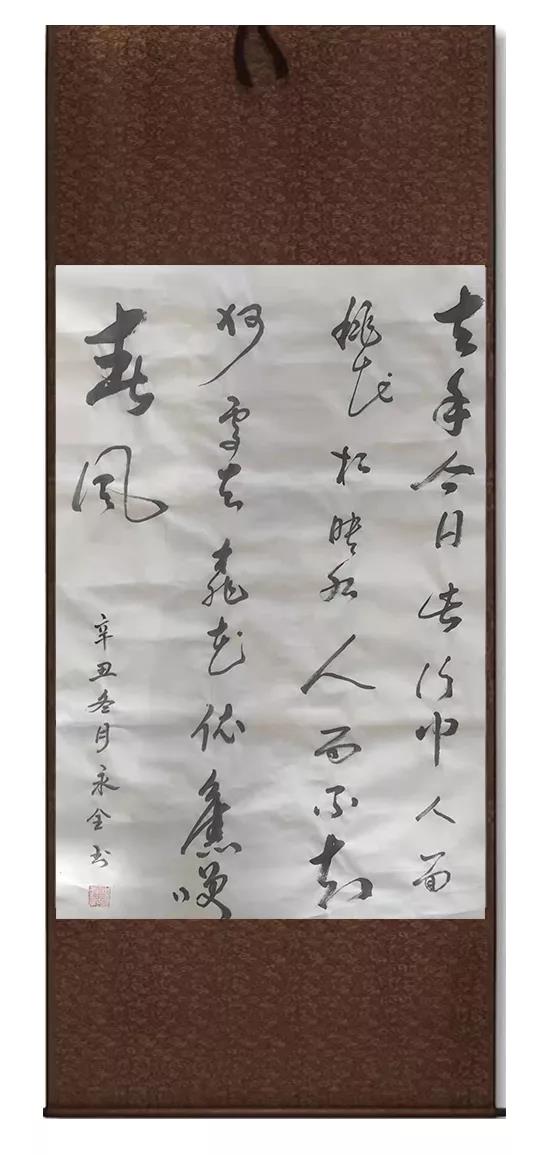 去年今日此门中人面
桃花相映红人面不知
何處去桃花依舊咲
春风
辛丑冬月永全书